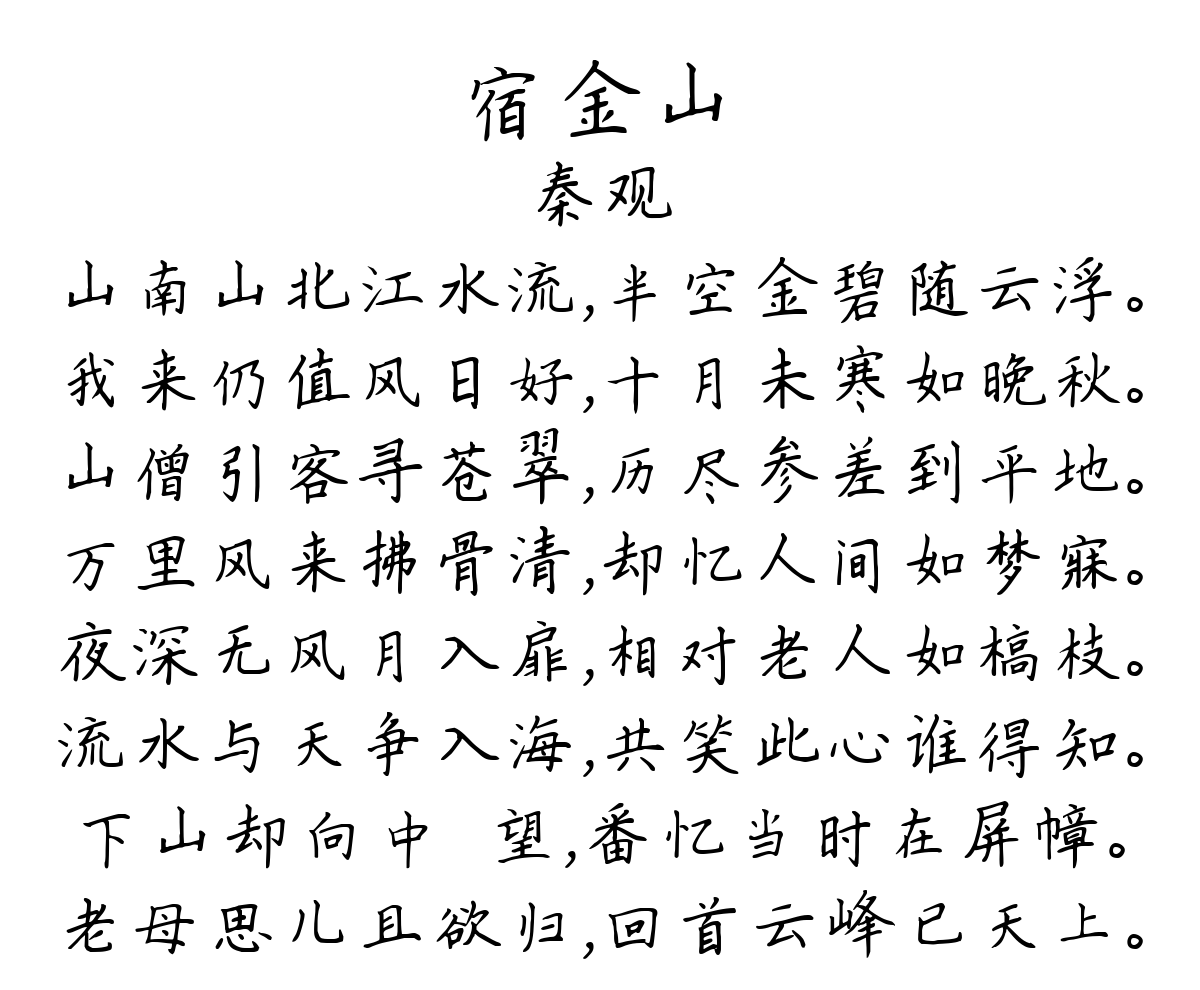 宿金山
秦观
山南山北江水流,半空金碧随云浮。
我来仍值风日好,十月未寒如晚秋。
山僧引客寻苍翠,历尽参差到平地。
万里风来拂骨清,却忆人间如梦寐。
夜深无风月入扉,相对老人如槁枝。
流水与天争入海,共笑此心谁得知。
下山却向中 望,番忆当时在屏幛。
老母思儿且欲归,回首云峰已天上。